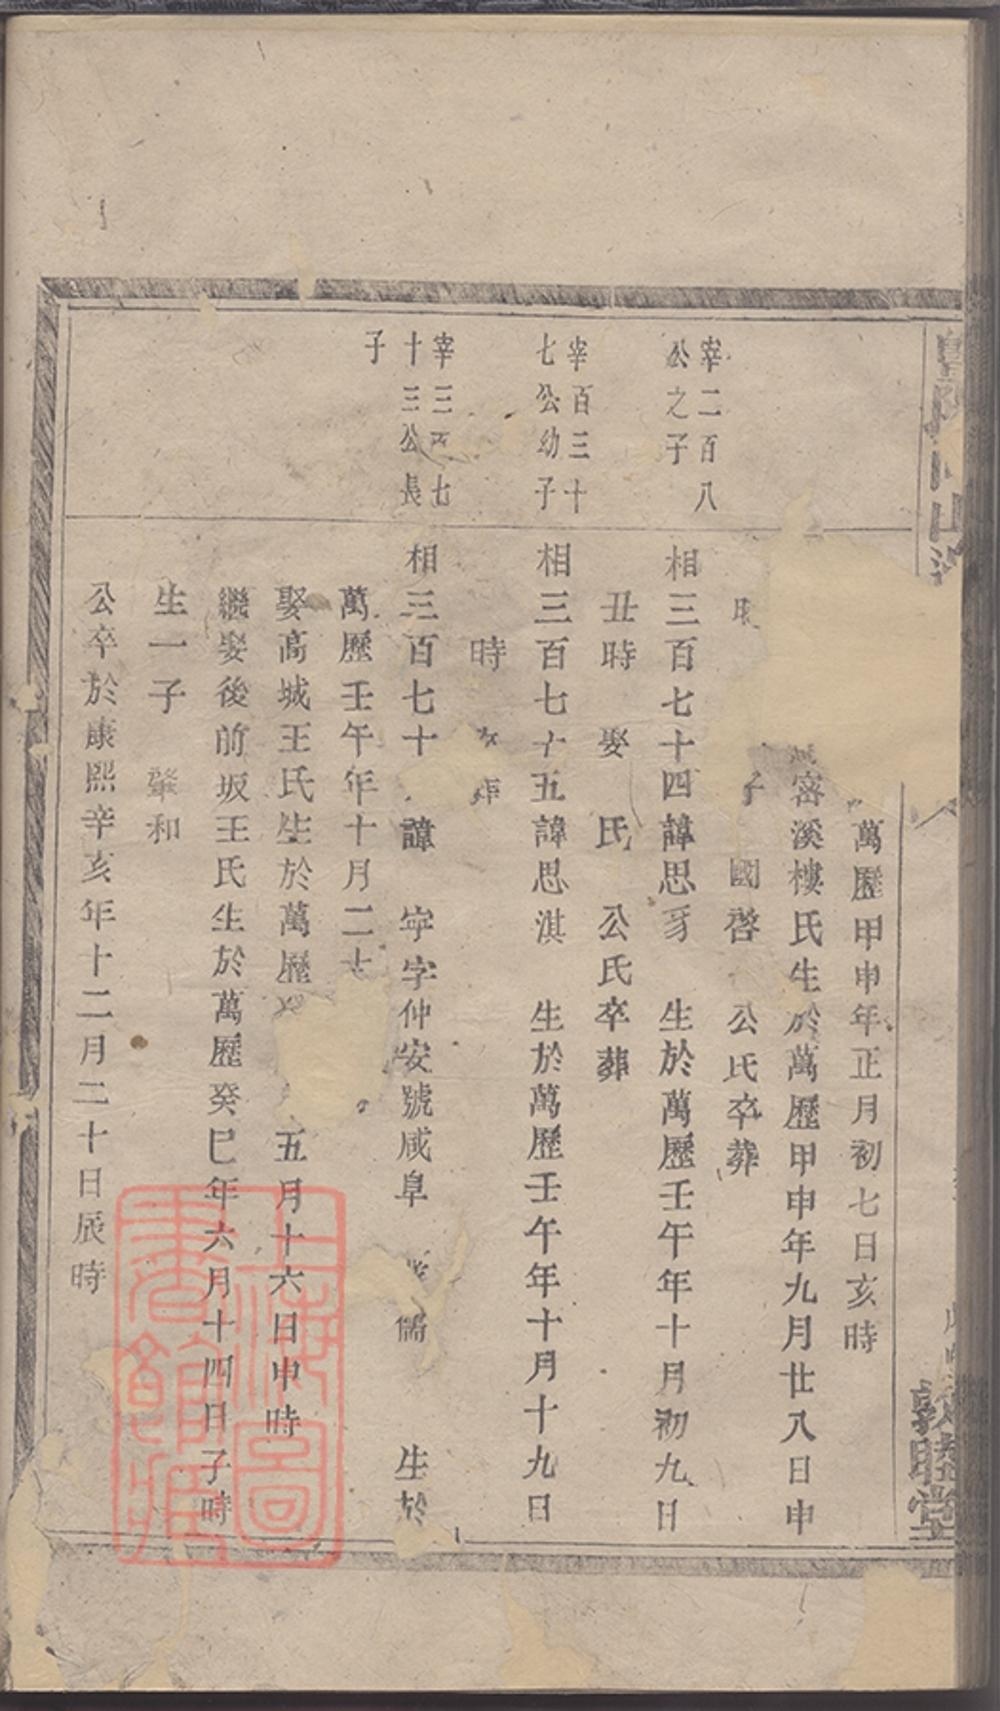 萬歷甲申年正月初七日亥時
密溪樓氏生於萬歷甲申年九月廿八日申
子 國啓 公氏卒葬
宰二百八
公之子
相三百七十四諱思 生於萬歷壬午年十月初九日
丑時 娶 氏 公氏卒葬
宰百三十
七公幼子
相三百七十五諱思淇 生於萬歷壬午年十月十九日
時
宰三百七
十三公長
子
相三百七十 諱 字仲安號咸阜 儒 生於
萬歷壬午年十月二十
娶高城王氏生於萬歷 五月十六日申時
繼娶後前坂王氏生於萬歷癸巳年六月十四日子時
生一子 肇和
公卒於康熙辛亥年十二月二十日辰時
敦睦堂
上海圖書館藏